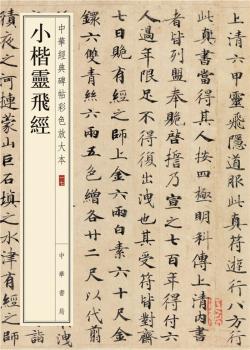 上清六甲靈飛隱道服此真符遊行八方行
此真書當得其人按四極明科傳上清內書
者皆列盟奉貺啓誓乃宣之七百年得付六
人過年限足不得復出泄也其受符皆對齋
七日貺有經之師上金六兩白素六十尺金
鐶六雙青絲六兩五色繒各廿二尺以代翦
中華經典碑帖彩色放大本
小楷靈飛經
中華書局
積夜之河捷蒙山巨石填之水津有